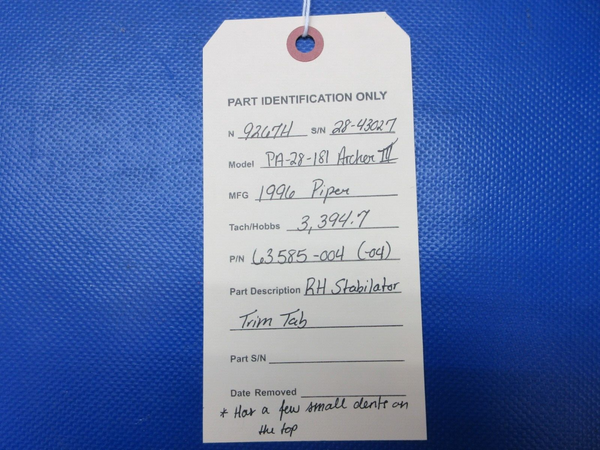 PART IDENTIFICATION ONLY
N 9267H S/N 28-43027
Model PA-28-181 Archer III
MFG 1996 Piper
Tach/Hobbs 3,394.7
P/N 63585-004 (-04)
Part Description RH Stabilator
Trim Tab
Part S/N
Date Removed
* Has a few small dents on
the top